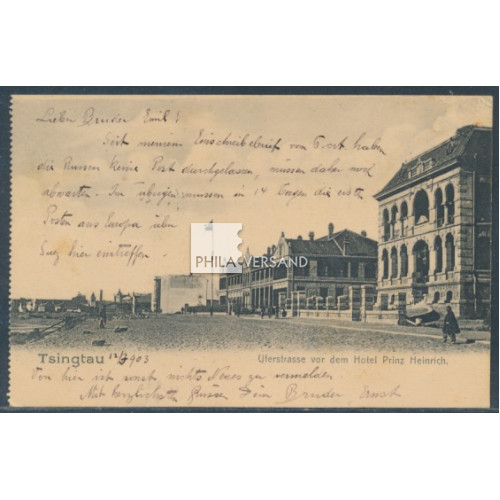 Lieber Bruder Emil!
Seit meinem Einschreibebrief von Ernst haben
die Russen keine Post durchgelassen, müssen daher noch
abwarten. Im Übrigen müssen in 14 Tagen die erste
Posten aus Europa über
Suez hier eintreffen.
PHILA VERSAND
Tsingtau 12/3 903
Uferstrasse vor dem Hotel Prinz Heinrich.
Von hier ist sonst nichts Neues zu vermelden
Mit herzlichsten Grüssen Dein Bruder Ernst